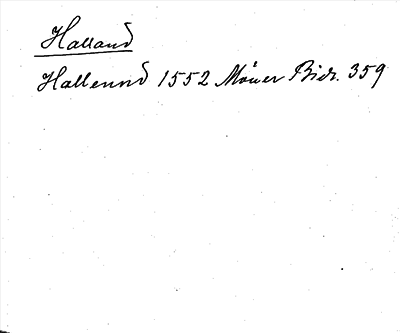 Halland
Hallennd 1552 Möller Bidr. 359